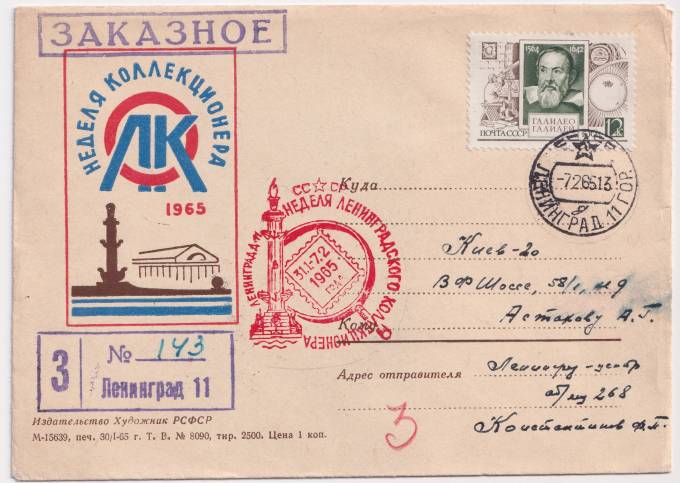 ЗАКАЗНОЕ
НЕДЕЛЯ КОЛЛЕКЦИОНЕРА
ЛК
1965
1564 1642
ГАЛИЛЕО
ГАЛИЛЕЙ
ПОЧТА СССР 12к
СССР
-726513
ЛЕНИНГРАД 11 ГОР.
СС☆СР
НЕДЕЛЯ ЛЕНИНГРАДСКОГО КОЛЛЕКЦИОНЕРА
ЛЕНИНГРАД Д-11
31.1-7.2
1965
ГРАД
Куда
Киев-20
В Ф Шоссе, 58/1,
Астахову А.Г.
Кому
З № 143
Ленинград 11
Адрес отправителя
Ленинград
268
Константинов Ф.П.
3
Издательство Художник РСФСР
М-15639, печ. 30/I-65 г. Т. В. № 8090, тир. 2500. Цена 1 коп.